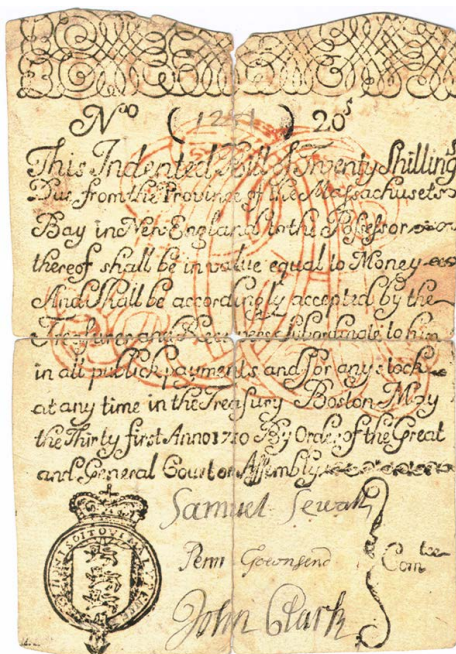 No (1251) 20s
This Indented Bill of Twenty Shillings
Due from the Province of the Massachusets
Bay in New-England to the Possessor
thereof shall be in value equal to Money
And shall be accordingly accepted by the
Treasurer and Receivers subordinate to him
in all publick payments and for any stock
at any time in the Treasury Boston May
the Thirty first Anno 1710 By Order of the Great
and General Court or Assembly
Samuel Sewall
Penn Townsend
Comtee
John Clark